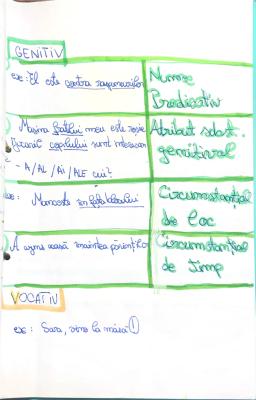 GENITIV
ex: El este contra răspunsurilor
Nume
Predicativ
Mașina fratelui meu este roșie
Jucăriile copilului sunt interesante
- A/AL/AI/ALE cui?
Atribut subst.
genitival
ex: Muncește în fața blocului
Circumstanțial
de loc
A ajuns acasă înaintea părinților
Circumstanțial
de timp
VOCATIV
ex: Sara, vino la masă!